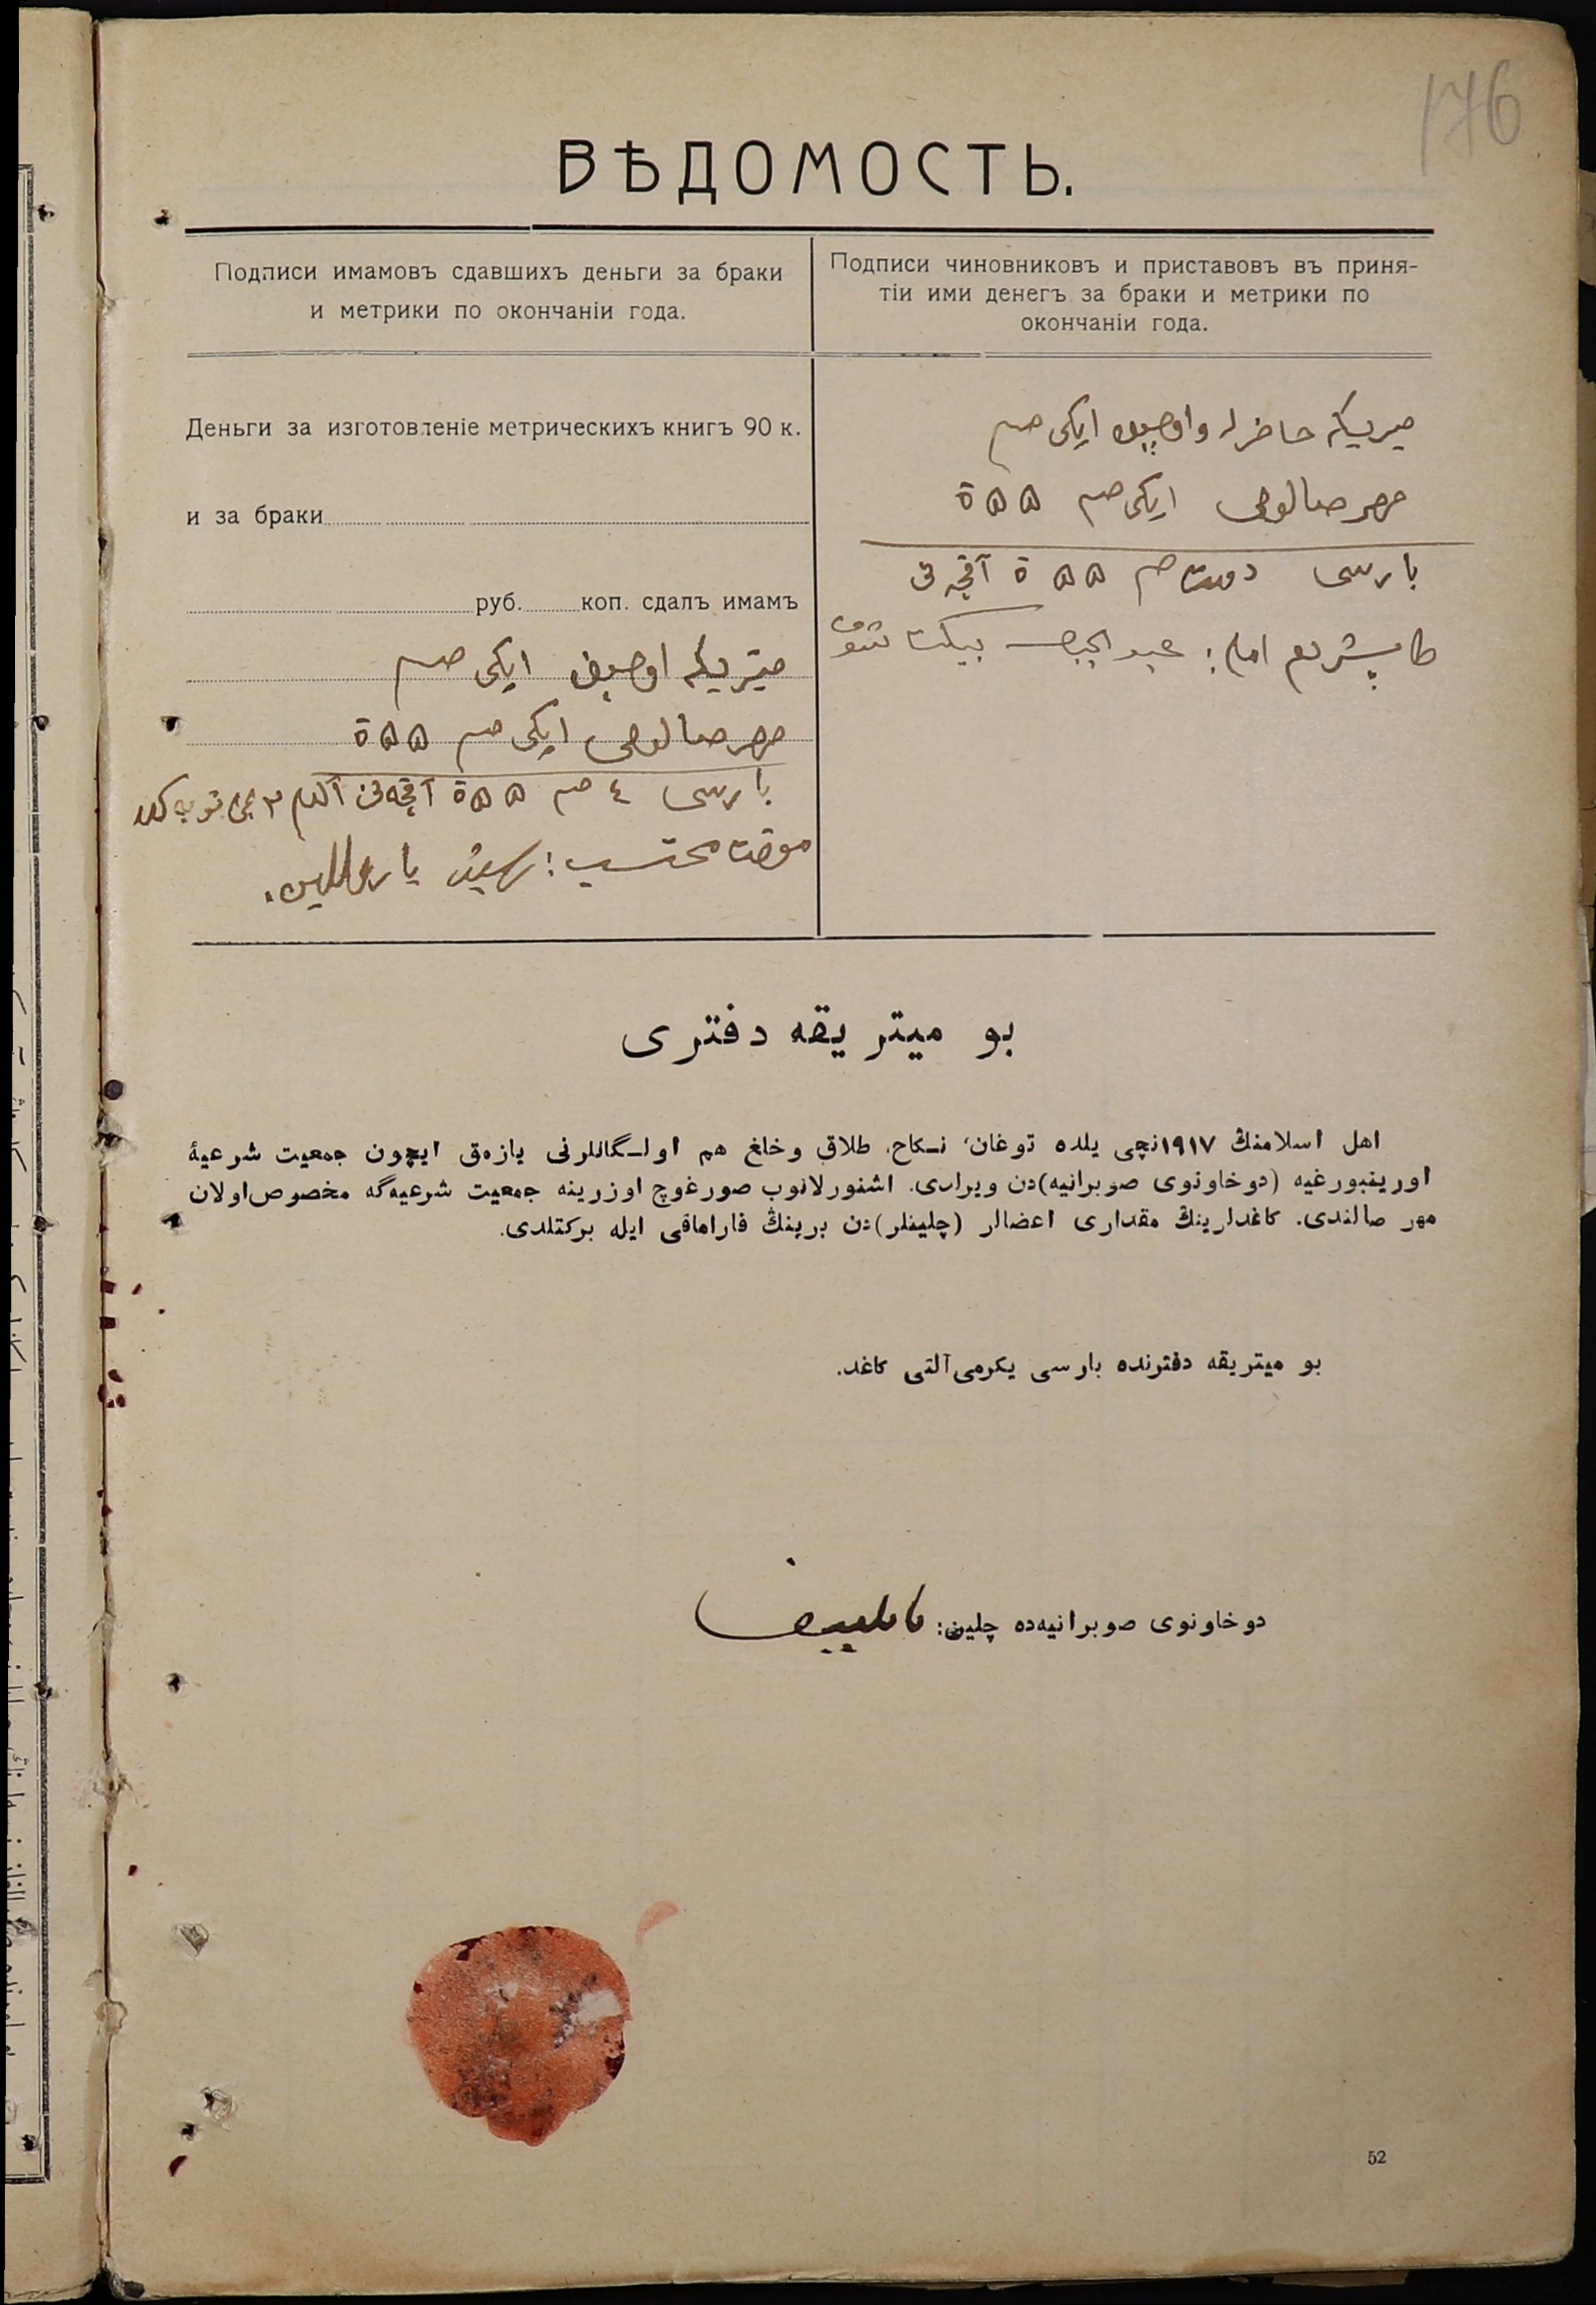 176
ВѢДОМОСТЬ.
Подписи имамовъ сдавшихъ деньги за браки
и метрики по окончаніи года.
Подписи чиновниковъ и приставовъ въ приня-
тіи ими денегъ за браки и метрики по
окончаніи года.
Деньги за изготовленіе метрическихъ книгъ 90 к.
и за браки
руб. коп. сдалъ имамъ
ميتريكه اوچون ايكى صم
مهر صالوى ايكى صم ۵۵ ة
بارسى ٤ صم ۵۵ ة آقچه نى آلدم
موقت محتسب:
ايكى صم
مهر صالوى ايكى صم ۵۵ ة
بارسى دورت صم ۵۵ ة آقچه نى
طابشردم امام: عبد
بو ميتريقه دفترى
اهل اسلامنڭ ۱۹۱۷نچى يلده توغان، نـكاح، طلاق وخلغ هم اولـگانلرنى يازمق ايچون جمعيت شرعيهٔ
اورينبورغيه (دوخاونوى صوبرانيه)دن ويرلدى. اشنورلانوب صورغوچ اوزرينه جمعيت شرعيه‌گه مخصوص اولان
مهر صالندى. كاغدلرينڭ مقدارى اعضالر (چلينلر)دن برينڭ قارامافى ايله بركتلدى.
بو ميتريقه دفترنده بارسى يكرمى آلتى كاغد.
دوخاونوى صوبرانيه‌ده چلين:
52